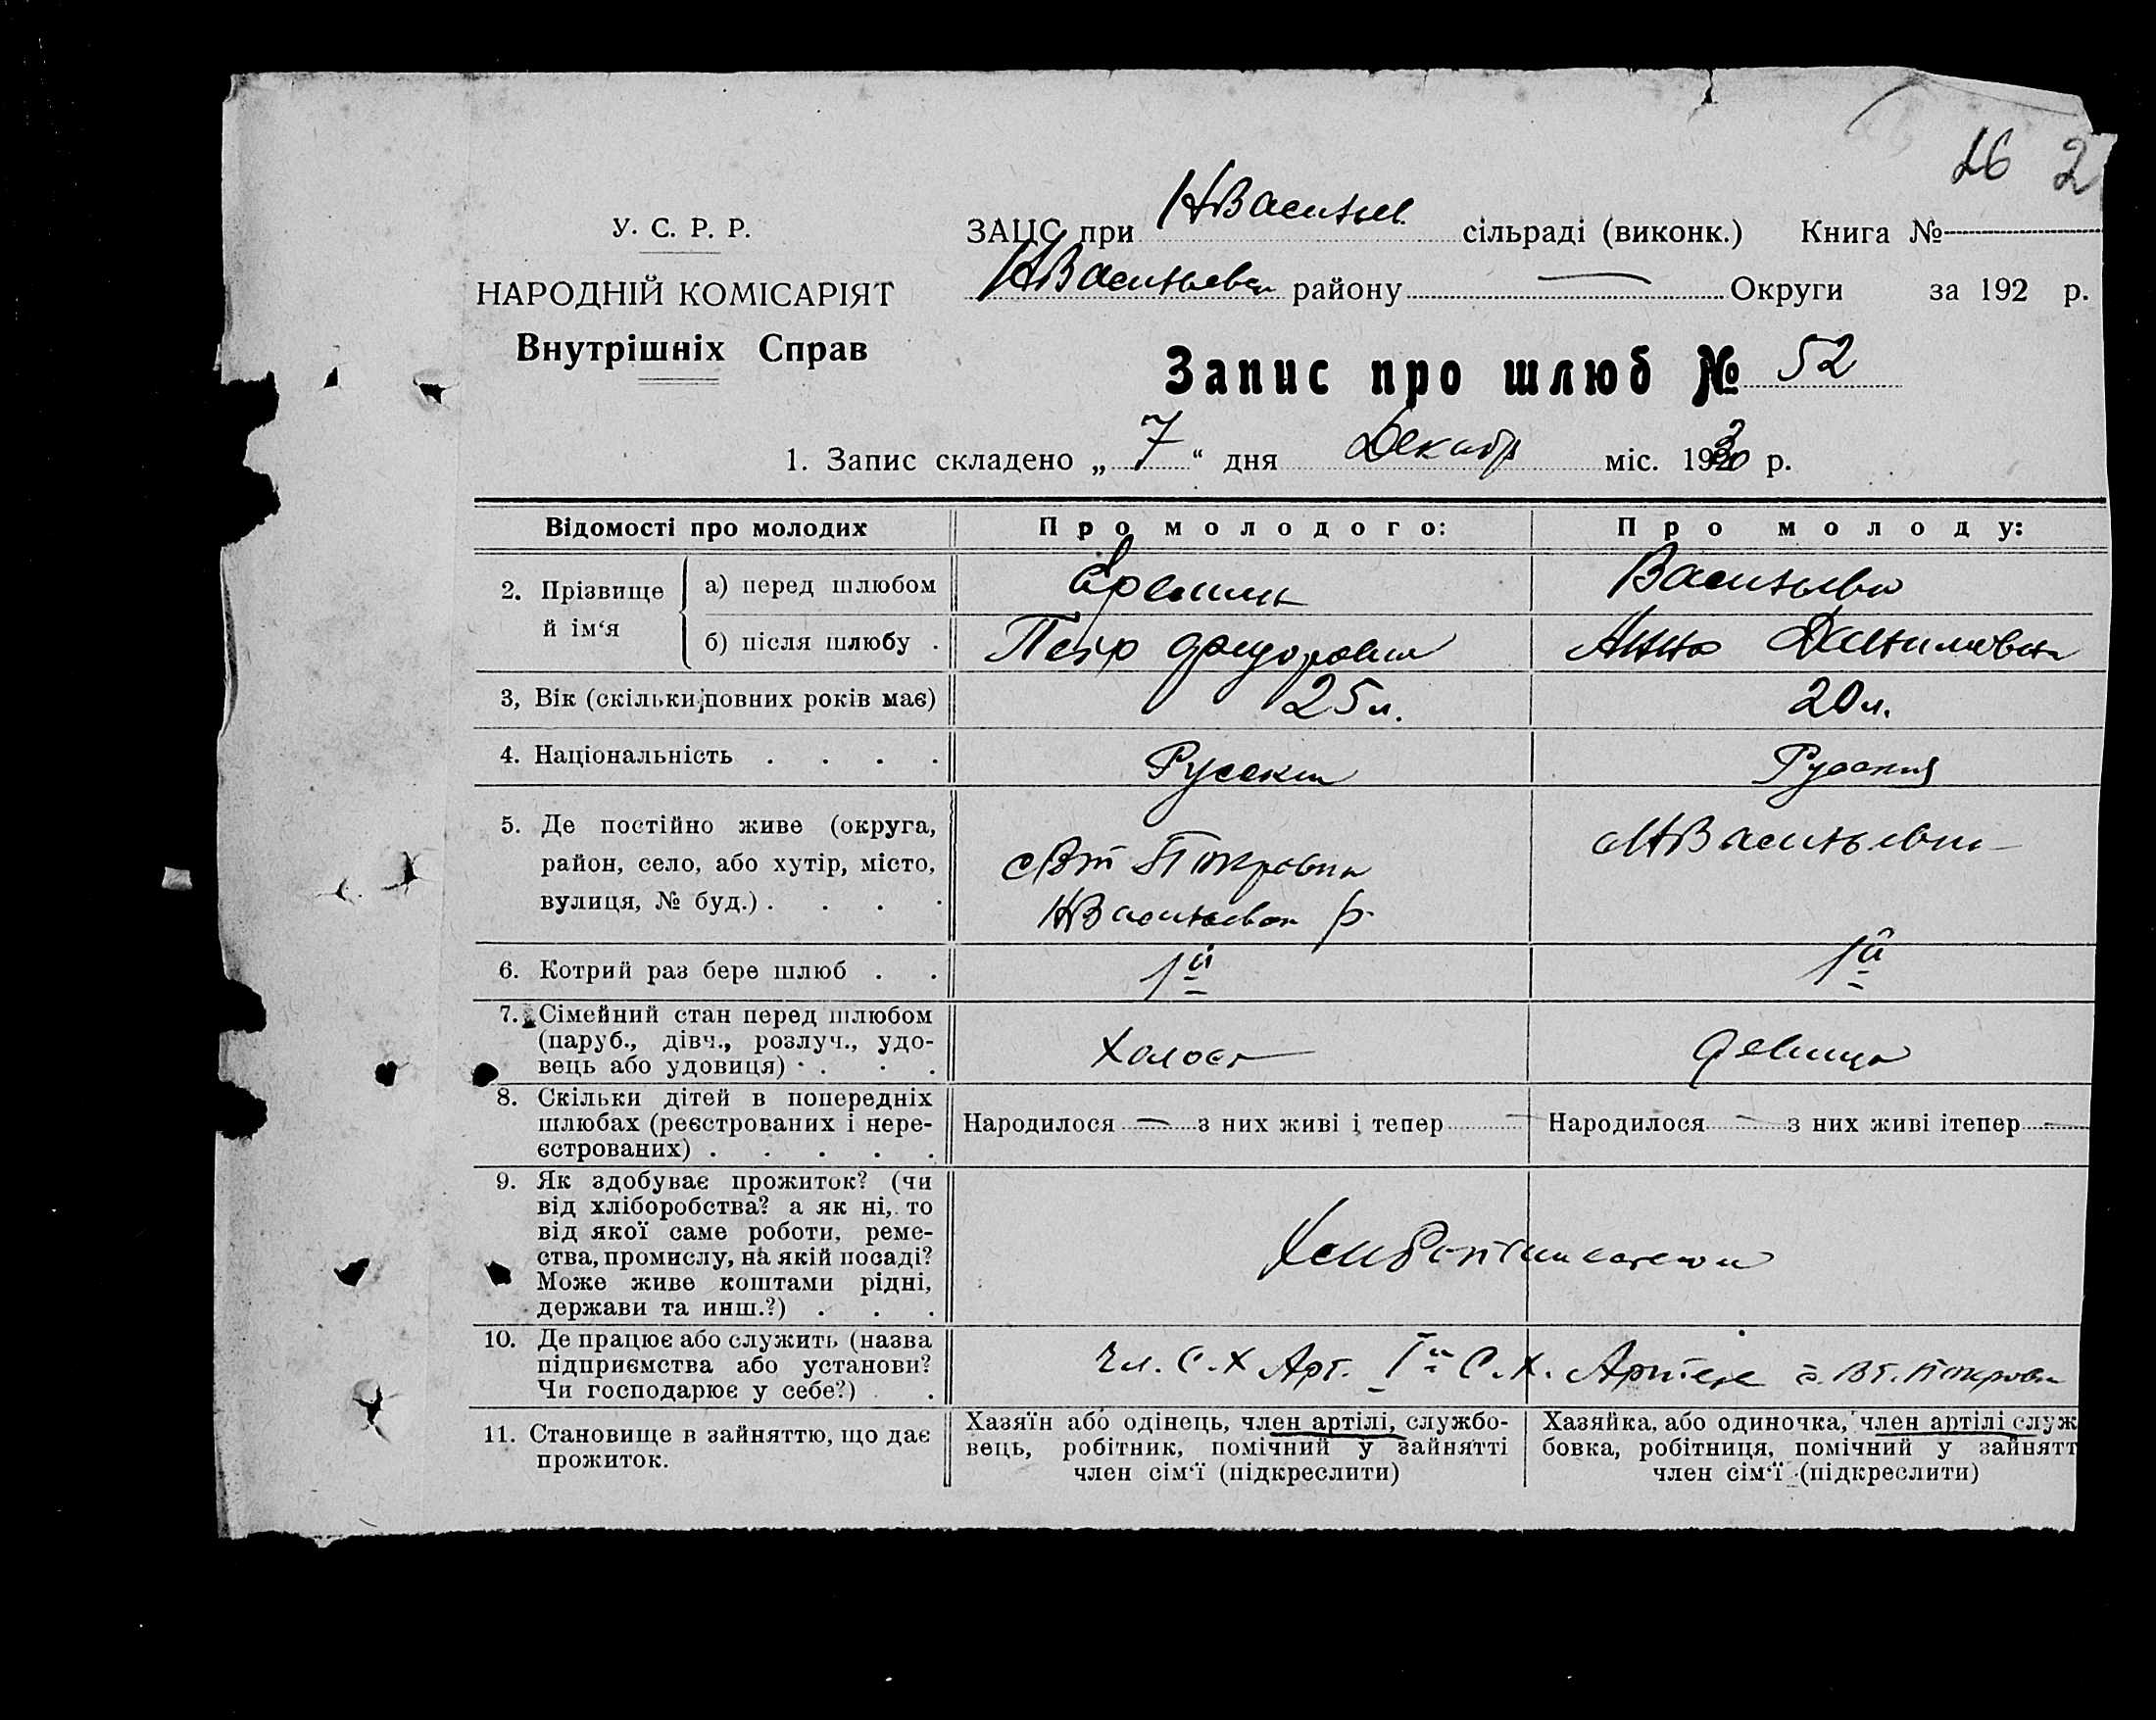 26 2
У. С. Р. Р.
НАРОДНІЙ КОМІСАРІЯТ
Внутрішніх Справ
ЗАЦС при НВасильев. сільраді (виконк.) Книга №
НВасильевск району — Округи за 192 р.
Запис про шлюб № 52
1. Запис складено „ 7 “ дня Декабр міс. 1930 р.
Відомості про молодих
Про молодого:
Про молоду:
2. Прізвище й ім‘я
а) перед шлюбом
Васильева
б) після шлюбу .
Петр Федорович
Анна Даниловна
3, Вік (скільки повних років має)
25 л.
20 л.
4. Національність . . . .
Русский
Русская
5. Де постійно живе (округа,
район, село, або хутір, місто,
вулиця, № буд.) . . . .
с Вт Покровка
НВасильевск р.
НВасильевка
6. Котрий раз бере шлюб . .
1й
1й
7. Сімейний стан перед шлюбом
(паруб., дівч., розлуч., удо-
вець або удовиця) . . . .
Холост
девица
8. Скільки дітей в попередніх
шлюбах (реєстрованих і нере-
єстрованих) . . . . .
Народилося — з них живі і тепер —
Народилося — з них живі ітепер —
9. Як здобуває прожиток? (чи
від хліборобства? а як ні, то
від якої саме роботи, реме-
ства, промислу, на якій посаді?
Може живе коштами рідні,
держави та инш.?) . . .
10. Де працює або служить (назва
підприємства або установи?
Чи господарює у себе?) .
Чл. С.Х Арт. Iй С.Х. Артели с. Вт. Покровк
11. Становище в зайняттю, що дає
прожиток.
Хазяїн або одінець, член артілі, службо-
вець, робітник, помічний у зайнятті
член сім‘ї (підкреслити)
Хазяйка, або одиночка, член артілі служ
бовка, робітниця, помічний у зайнятт
член сім‘ї (підкреслити)